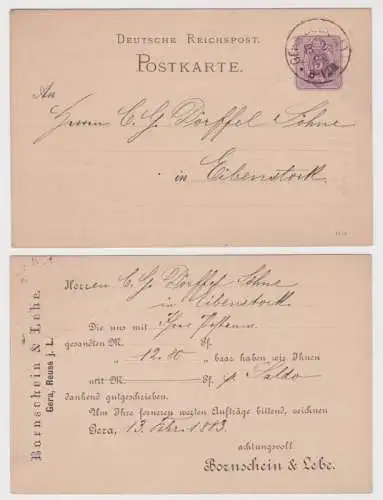 DEUTSCHE REICHSPOST.
POSTKARTE.
An
Herren C. G. Dörffel Söhne
in Eibenstock.
Bornschein & Lebe.
Gera, Reuss j. L.
Herren C. G. Dörffel Söhne
in Eibenstock
Die uns mit Ihrer Postanw.
gesandten M. Pf.
" 12.80 " baar haben wir Ihnen
mit M. Pf. pr. Saldo
dankend gutgeschrieben.
Um Ihre ferneren werthen Aufträge bittend, zeichnen
Gera, 13. Febr. 1883.
achtungsvoll
Bornschein & Lebe.